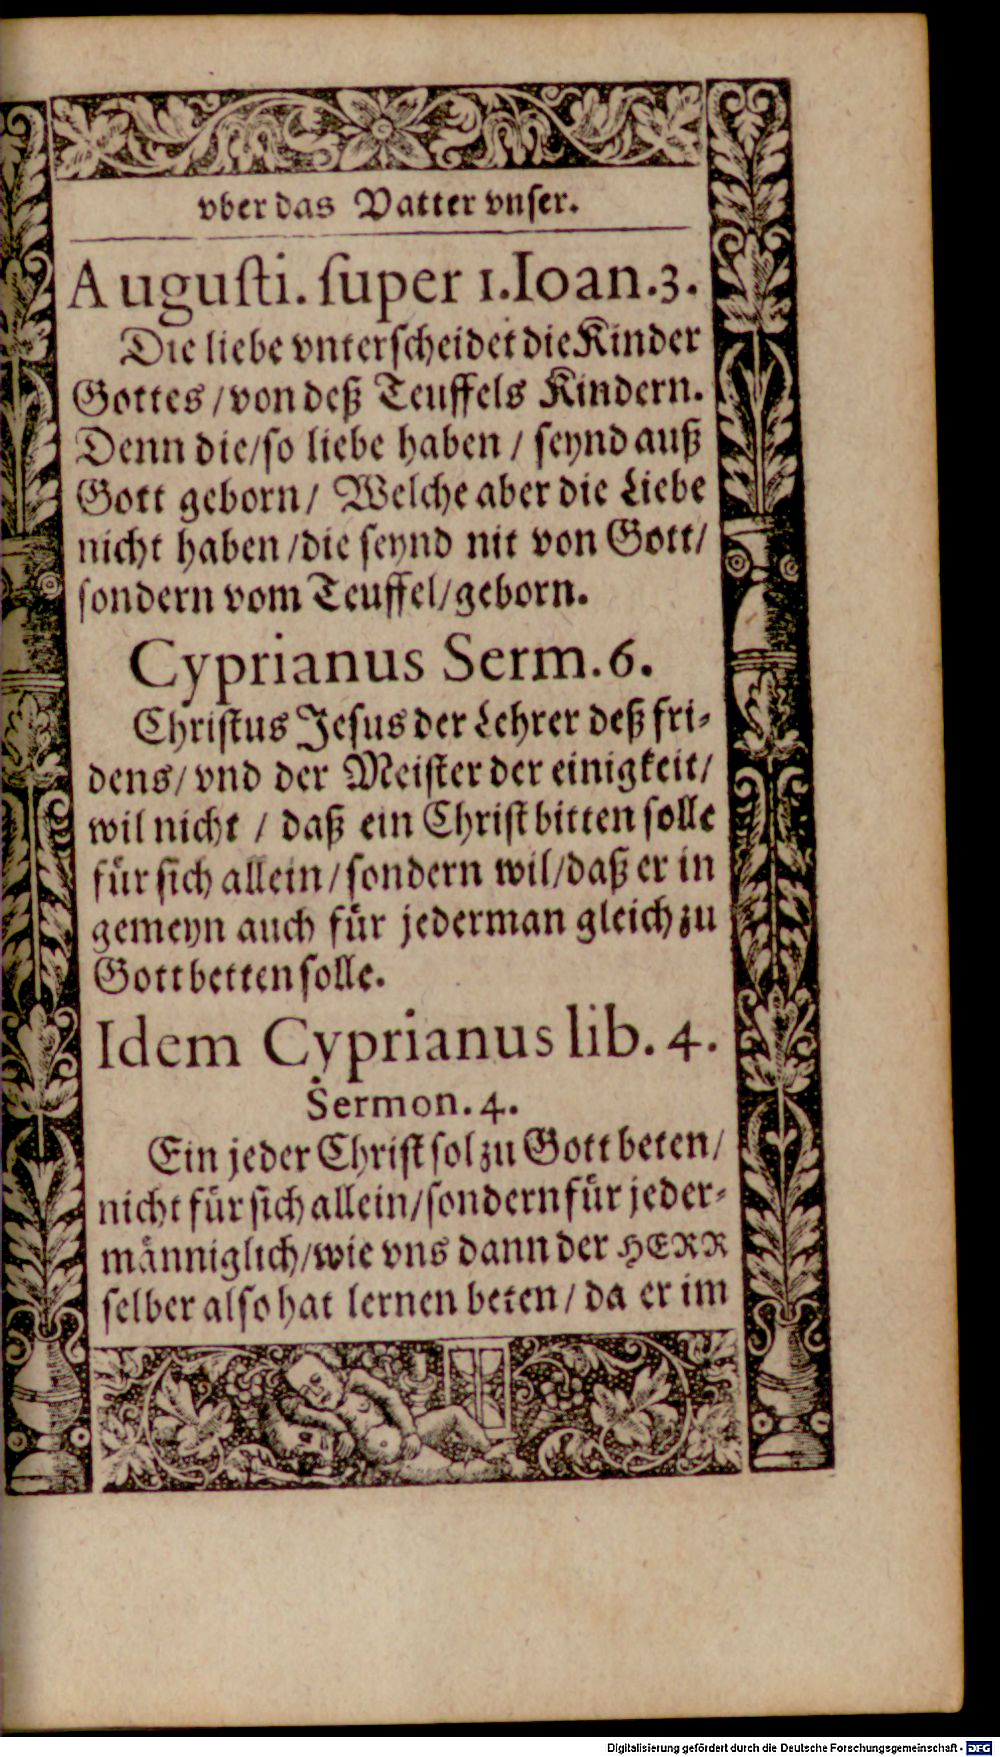 vber das Vatter vnſer.
Auguſti. ſuper 1. Ioan. 3.
Die liebe vnterſcheidet die Kinder
Gottes / von deß Teuffels Kindern.
Denn die / ſo liebe haben / ſeynd auß
Gott geborn / Welche aber die Liebe
nicht haben / die ſeynd nit von Gott /
ſondern vom Teuffel / geborn.
Cyprianus Serm. 6.
Chriſtus Jeſus der Lehrer deß fri-
dens / vnd der Meiſter der einigkeit /
wil nicht / daß ein Chriſt bitten ſolle
fuͤr ſich allein / ſondern wil / daß er in
gemeyn auch fuͤr jederman gleich zu
Gott betten ſolle.
Idem Cyprianus lib. 4.
Sermon. 4.
Ein jeder Chriſt ſol zu Gott beten /
nicht fuͤr ſich allein / ſondern fuͤr jeder-
maͤnniglich / wie vns dann der HERR
ſelber alſo hat lernen beten / da er im
Digitalisierung gefördert durch die Deutsche Forschungsgemeinschaft - DFG